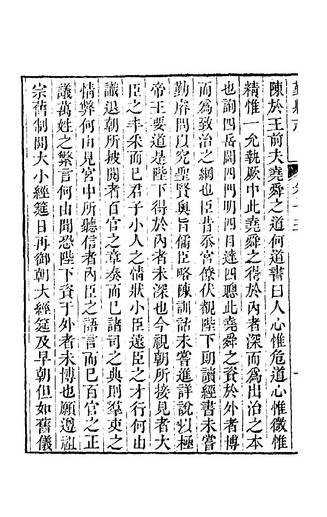 陳於王前夫堯舜之道何道書曰人心惟危道心惟微惟
精惟一允執厥中此堯舜之得於內者深而為出治之本
也詢四岳闢四門明四目達四聰此堯舜之資於外者博
而為致治之綱也臣昔忝宮僚伏覩陛下朗讀經書未嘗
勤睿問以究聖賢奧旨儒臣略陳訓詁未嘗進詳說以極
帝王要道是陛下得於內者未深也今視朝所接見者大
臣之丰采而已君子小人之情狀小臣遠臣之才行何由
識退朝所披閱者百官之章奏而已諸司之典則羣吏之
情弊何由見宮中所聽信者內臣之語言而已百官之正
議萬姓之繁言何由聞恐陛下資于外者未博也願遵祖
宗舊制開大小經筵日再御朝大經筵及早朝但如舊儀